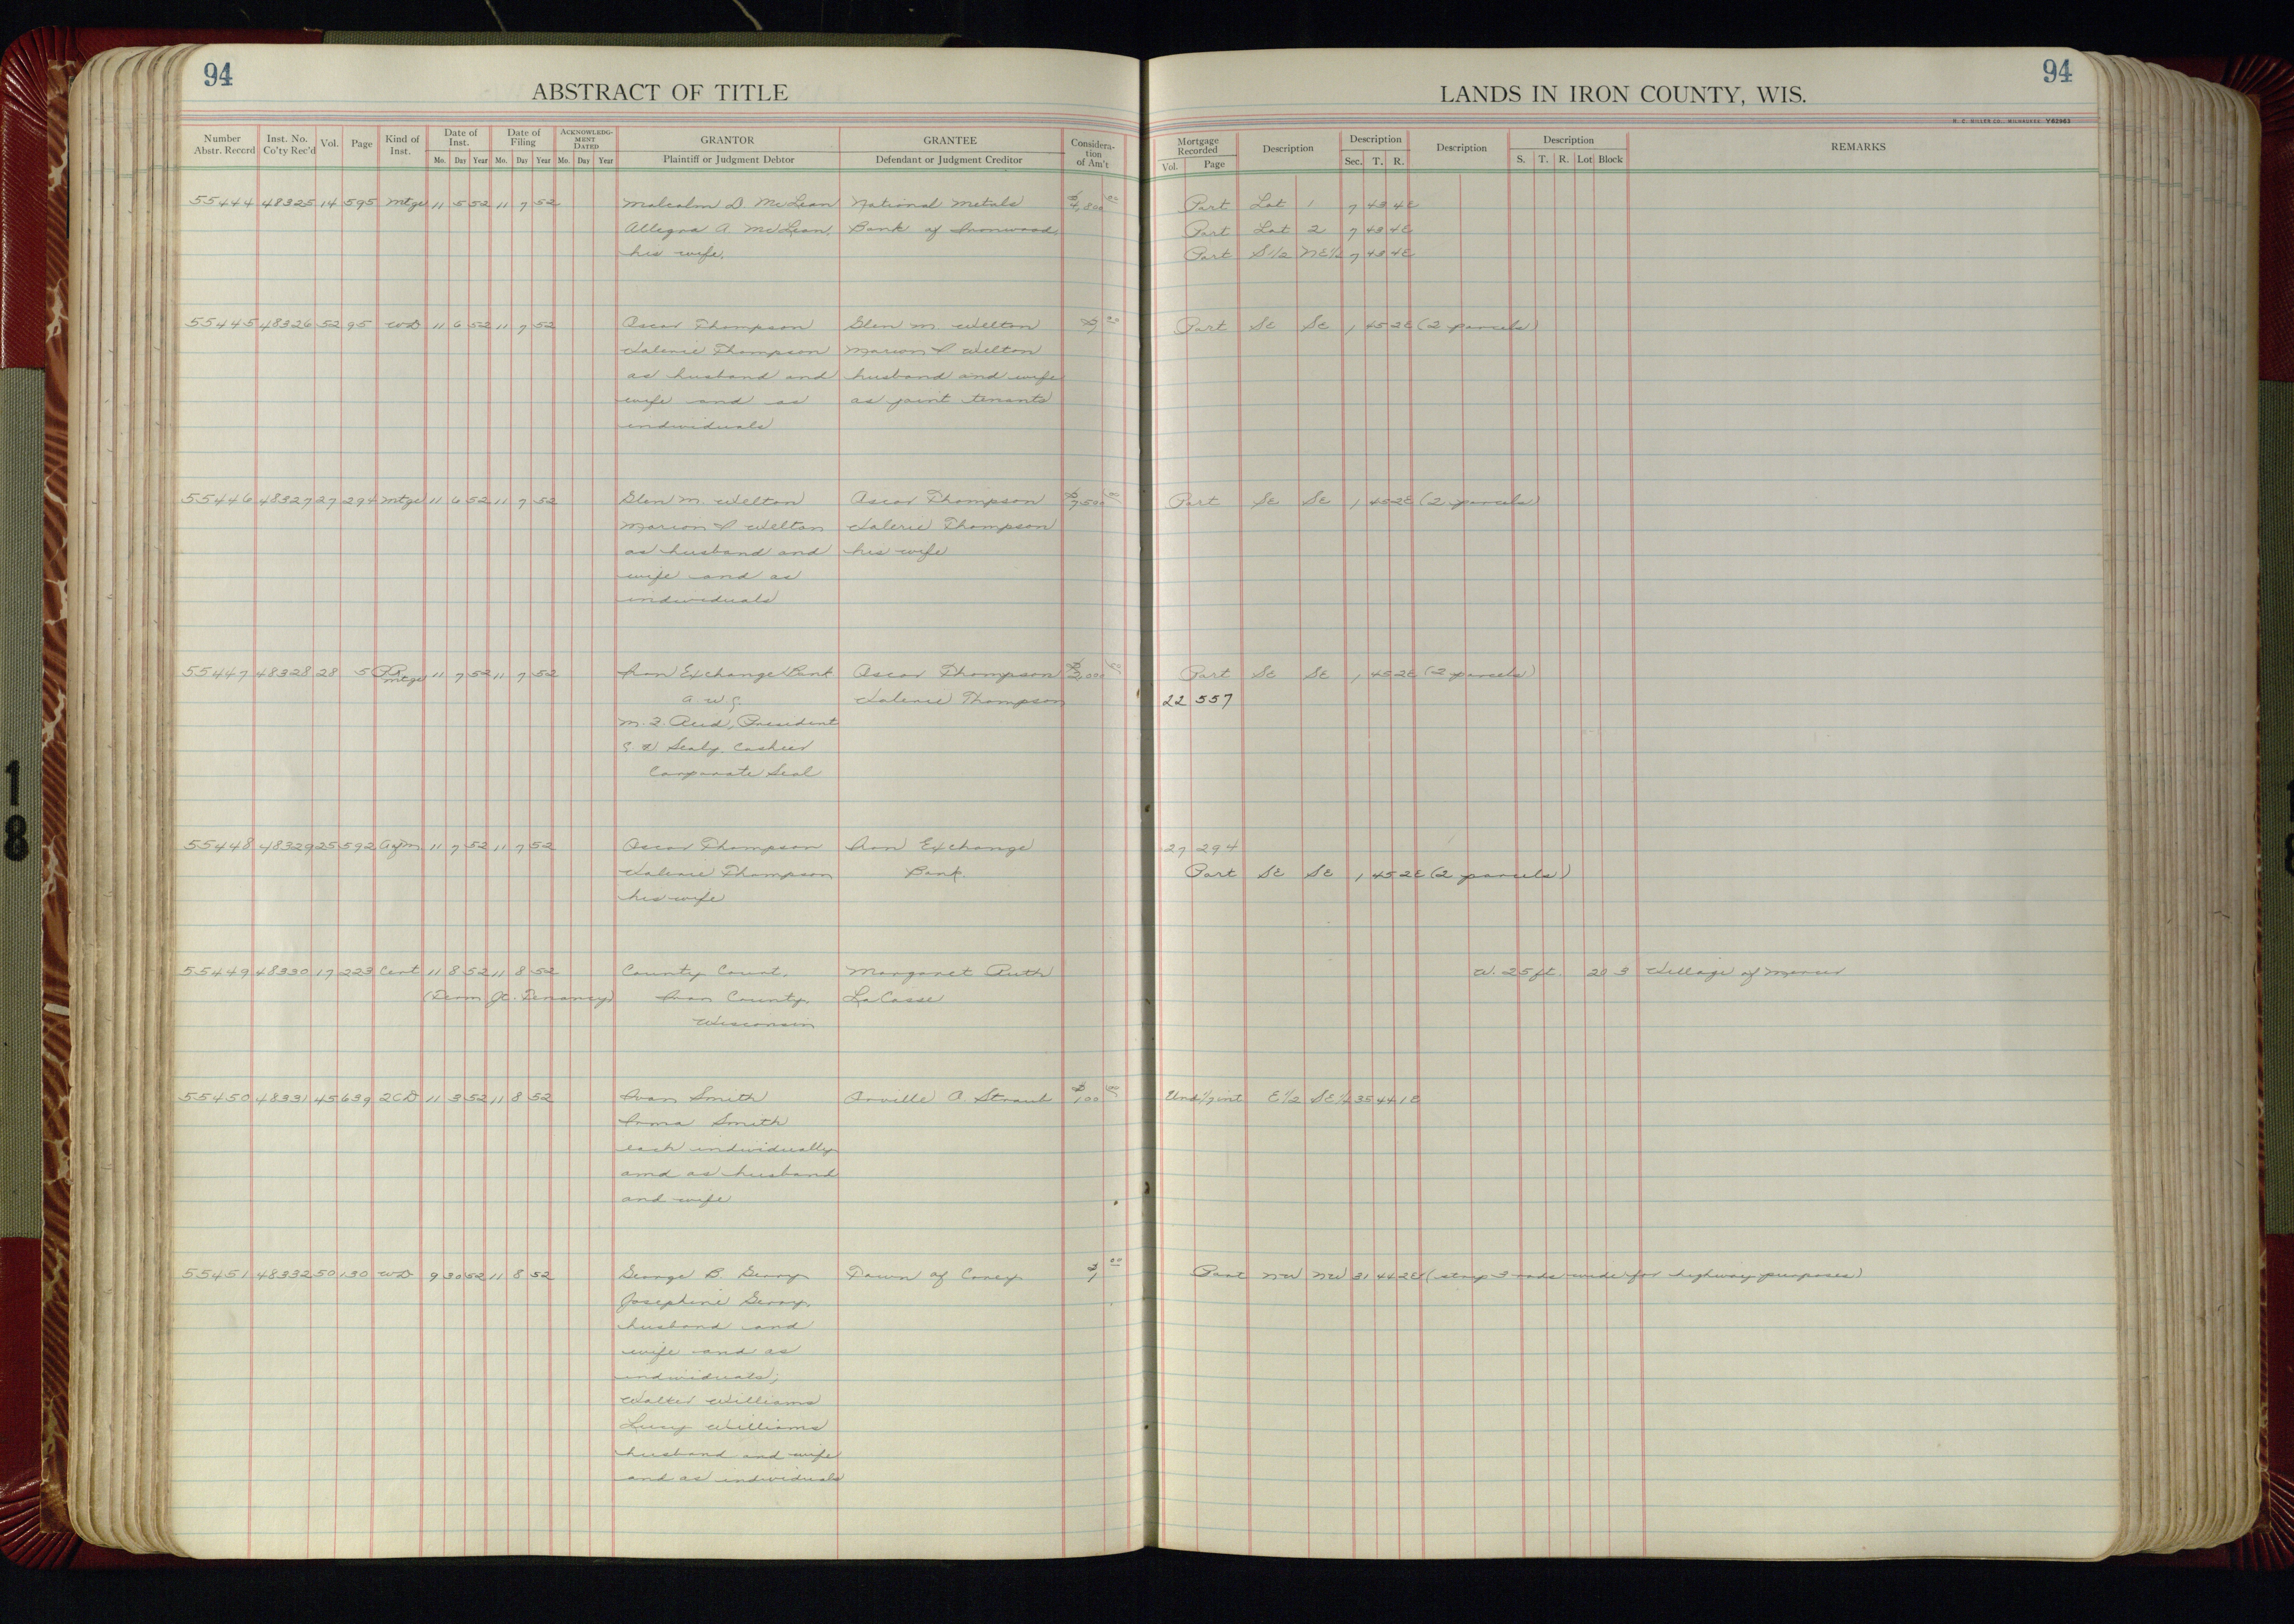 94
ABSTRACT OF TITLE
Number Abstr. Record
Inst. No. Co'ty Rec'd
Vol.
Page
Kind of Inst.
Date of Inst.
Date of Filing
ACKNOWLEDGMENT DATED
GRANTOR
GRANTEE
Consideration of Am't
Mo. Day Year Mo. Day Year Mo. Day Year
Plaintiff or Judgment Debtor
Defendant or Judgment Creditor
94
LANDS IN IRON COUNTY, WIS.
H. C. MILLER CO., MILWAUKEE Y62963
Mortgage Recorded
Description
Description
Description
Description
REMARKS
Vol. Page
Sec. T. R.
S. T. R. Lot Block
55444 48325 14 595 Mtge 11 5 52 11 7 52 Malcolm D. McLean National Metals $4,800 00 Part Lot 1 7 43 4E
Allegra A. McLean, Bank of Ironwood, Part Lot 2 7 43 4E
his wife, Part S1/2 NE1/4 7 43 4E
55445 48326 52 95 WD 11 6 52 11 7 52 Oscar Thompson Glen M. Welton $ 00 Part SE SE 1 45 2E (2 parcels)
Thompson Marion Welton
as husband and husband and wife
wife and as as joint tenants
individuals
55446 48327 27 294 Mtge 11 6 52 11 7 52 Glen M. Welton Oscar Thompson $7,500 00 Part SE SE 1 45 2E (2 parcels)
Marion Welton Valerie Thompson
as husband and his wife
wife and as
individuals
55447 48328 28 5 PR Mtge 11 7 52 11 7 52 Iron Exchange Bank Oscar Thompson $ Part SE SE 1 45 2E (2 parcels)
Thompson 22 557
M. J. Reid, President
Sealy, Cashier
Corporate Seal
55448 48329 25 592 Agm 11 7 52 11 7 52 Oscar Thompson Iron Exchange 27 294
Thompson Bank. Part SE SE 1 45 2E (2 parcels)
his wife
55449 48330 17 223 Cert 11 8 52 11 8 52 County Court, Margaret Ruth W. 25 ft. 20 3 Village of Mercer
(Term Jt. Tenancy) Iron County, LaCasse
Wisconsin
55450 48331 45 639 2CD 11 3 52 11 8 52 Ivan Smith Orville A. Straub $100 00 Und 1/7 int E1/2 SE1/4 35 44 1E
Irma Smith
each individually
and as husband
and wife
55451 48332 50 130 WD 9 30 52 11 8 52 George B. Geroy Town of Carey $1 00 Part NW NW 31 44 2E (strip 3 rods wide for highway purposes)
Josephine Geroy,
husband and
wife and as
individuals;
Walter Williams
Lucy Williams
husband and wife
and as individuals